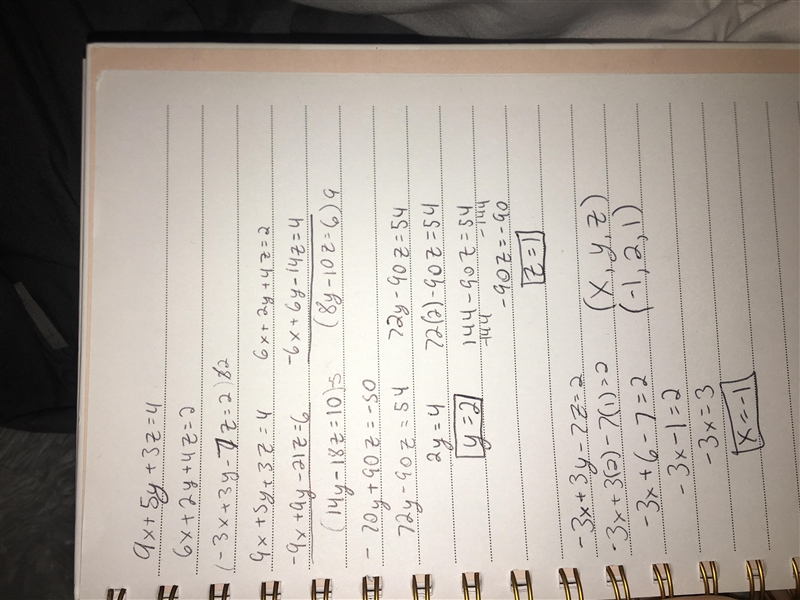 9x+5y+3z=4
6x+2y+4z=2
(-3x+3y-7z=2)2
9x+5y+3z=4 6x+2y+4z=2
-9x+9y-21z=6 -6x+6y-14z=4
(14y-18z=10)-5 (8y-10z=6)9
-70y+90z=-50
72y-90z=54 72y-90z=54
2y=4 72(2)-90z=54
y=2 144-90z=54
-144 -144
-90z=-90
z=1
-3x+3y-7z=2
-3x+3(2)-7(1)=2 (x,y,z)
-3x+6-7=2 (-1,2,1)
-3x-1=2
-3x=3
x=-1